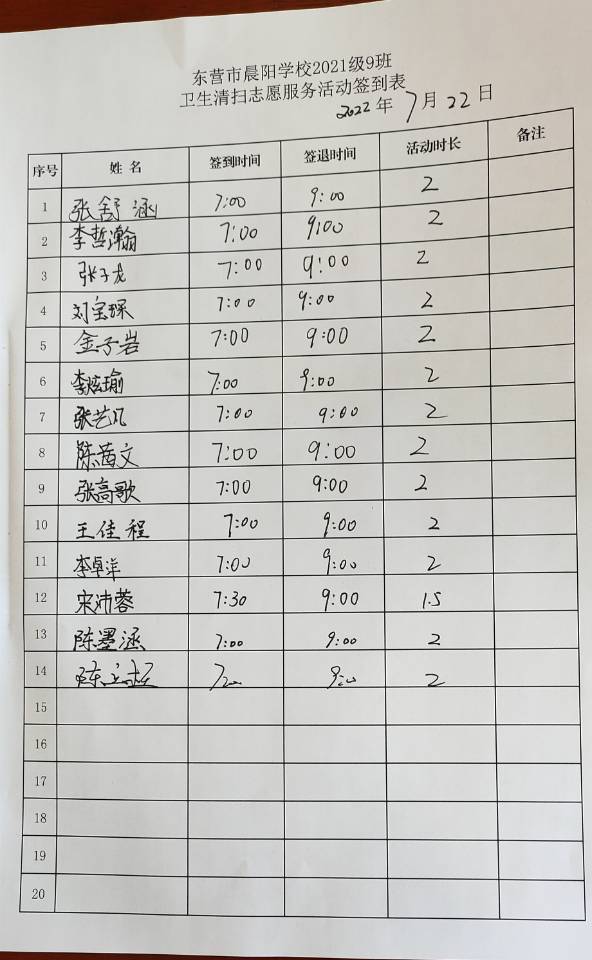 东营市晨阳学校2021级9班
卫生清扫志愿服务活动签到表
2022年 7月22日
序号 姓名 签到时间 签退时间 活动时长 备注
1 张舒涵 7:00 9:00 2
2 李哲瀚 7:00 9:00 2
3 张子龙 7:00 9:00 2
4 刘宝琛 7:00 9:00 2
5 金子岩 7:00 9:00 2
6 李炫瑜 7:00 9:00 2
7 张艺凡 7:00 9:00 2
8 陈茜文 7:00 9:00 2
9 张高歌 7:00 9:00 2
10 王佳程 7:00 9:00 2
11 李卓洋 7:00 9:00 2
12 宋沛蓉 7:30 9:00 1.5
13 陈墨涵 7:00 9:00 2
14 陈 7:00 9:00 2
15
16
17
18
19
20